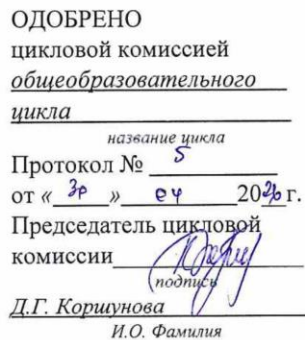 ОДОБРЕНО
цикловой комиссией
общеобразовательного
цикла
название цикла
Протокол № 5
от « » 20 г.
Председатель цикловой
комиссии
подпись
Д.Г. Коршунова
И.О. Фамилия